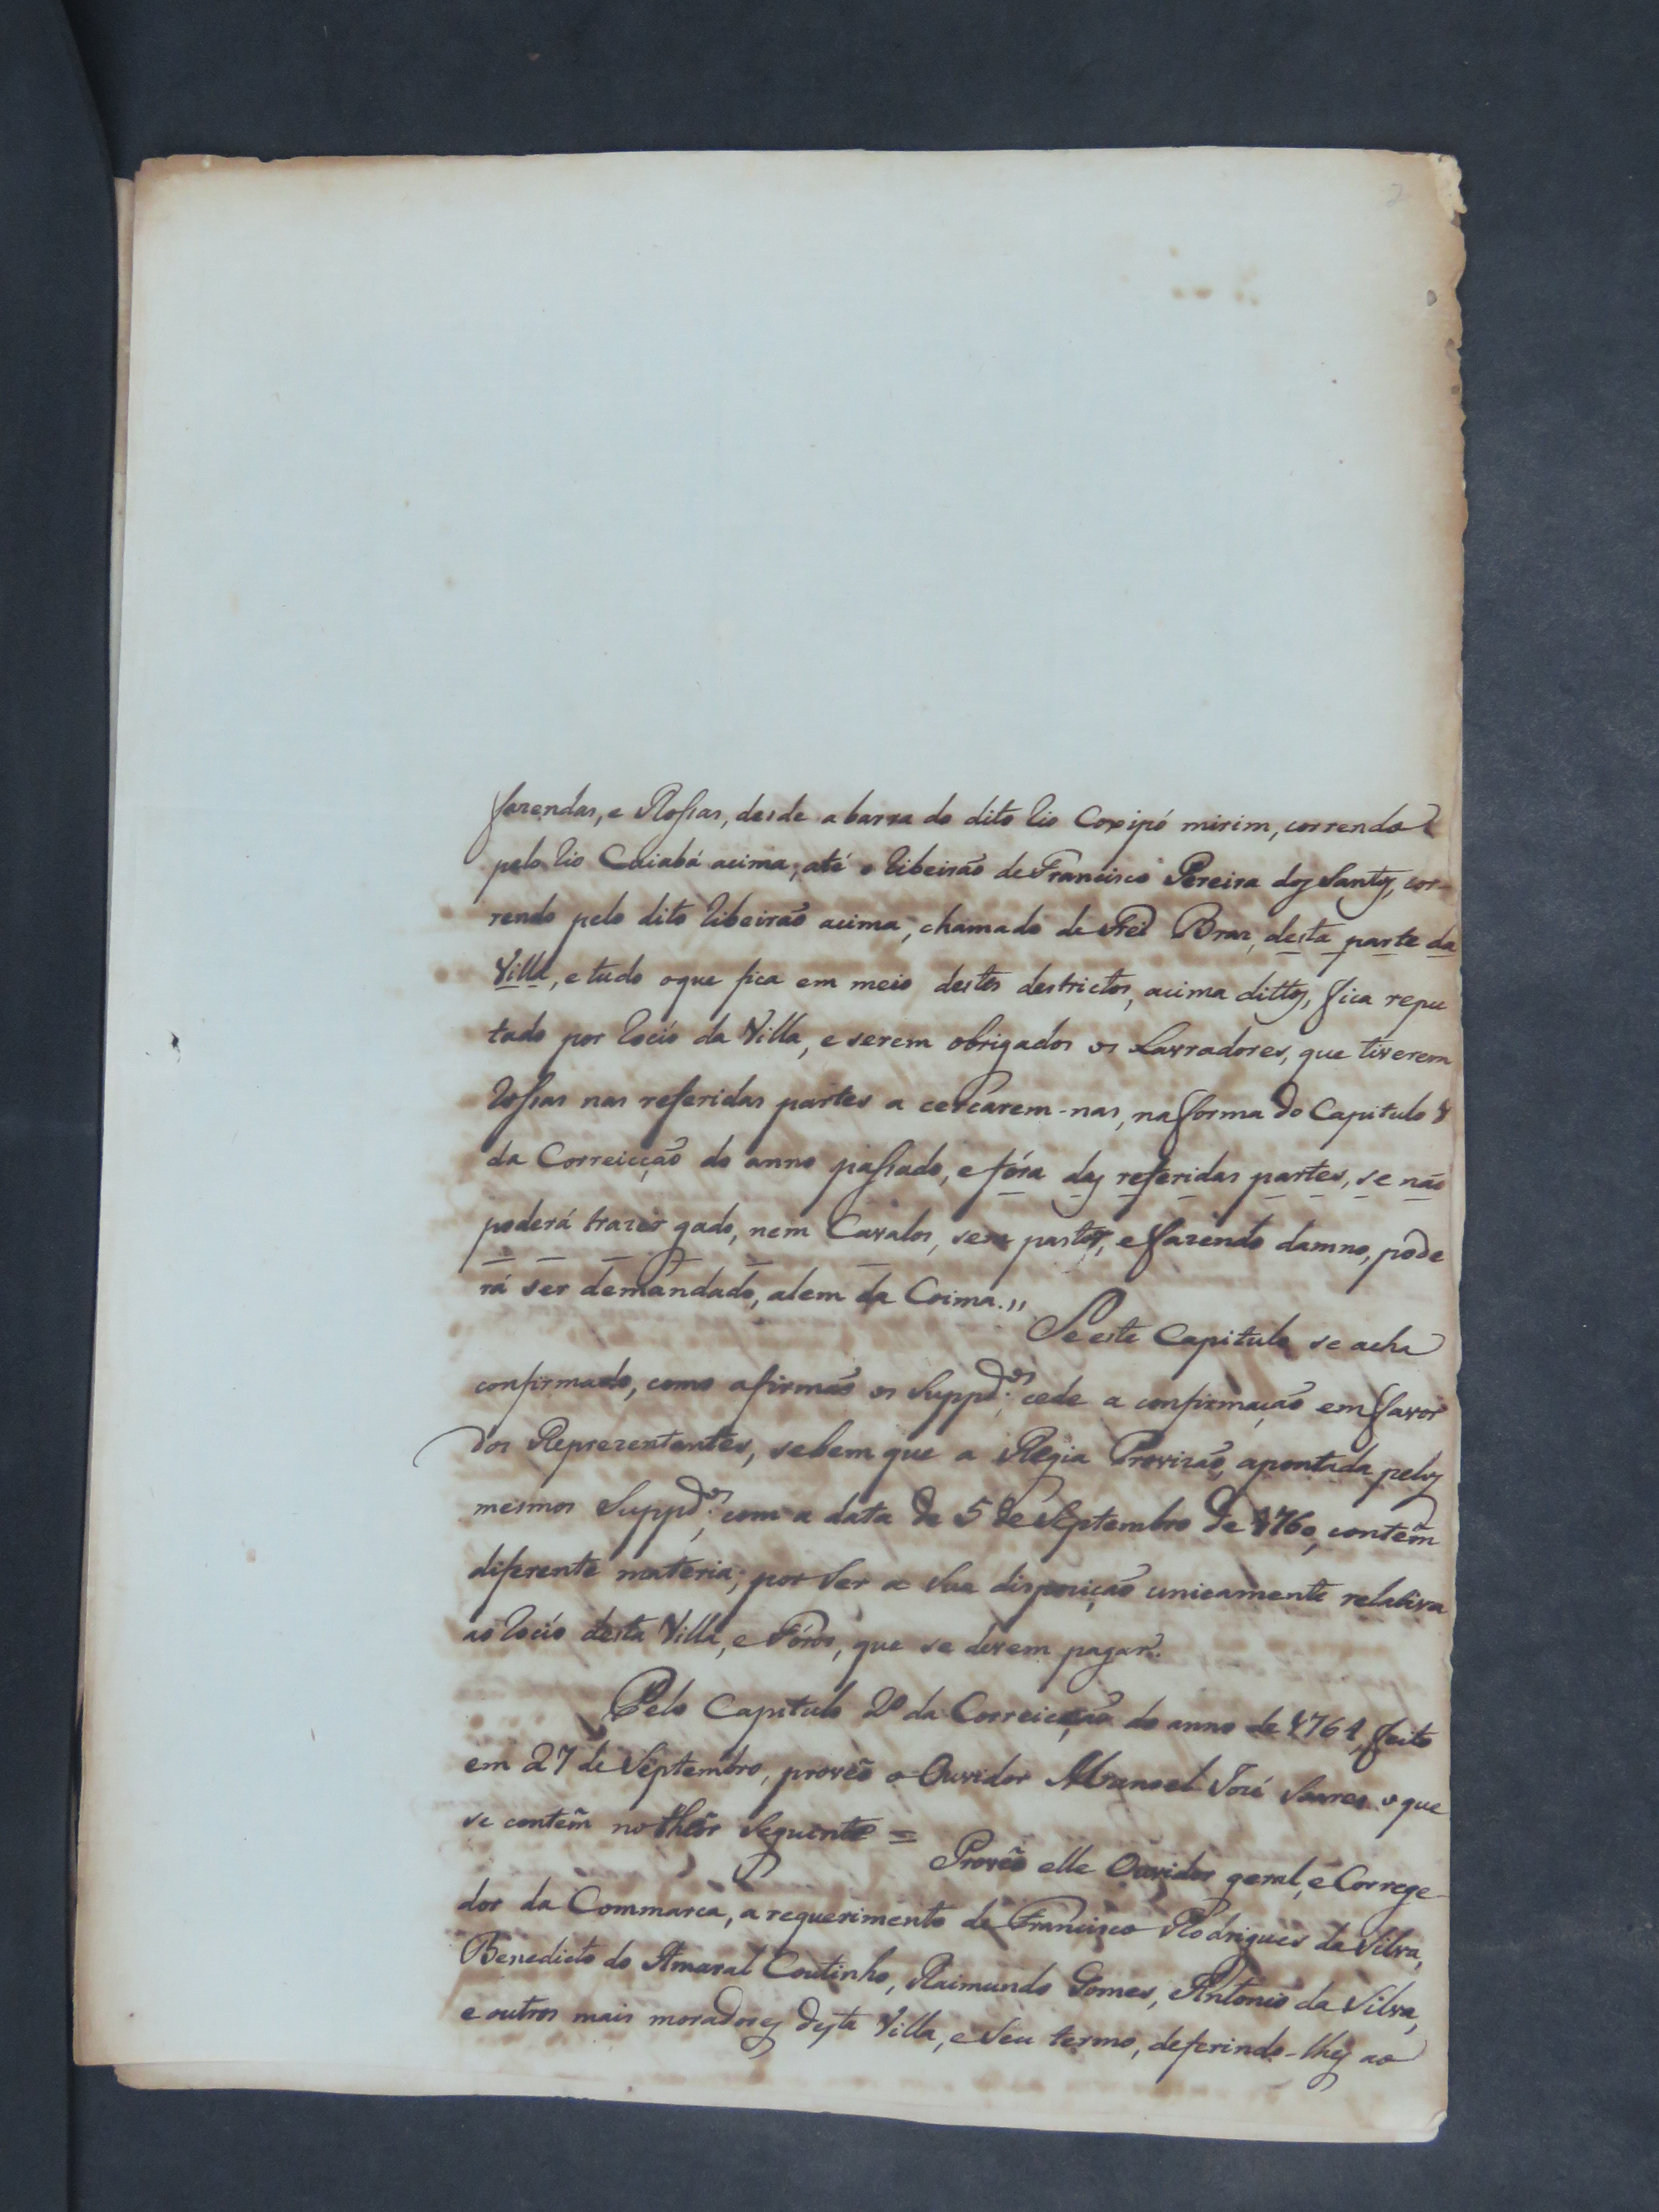 2
fazendas, e Rossas, desde a barra do dito Rio Coxipó mirim, correndo
pelo Rio Cuiabá acima, até o Ribeirão de Francisco Pereira dos Santos, cor-
rendo pelo dito Ribeirão acima, chamado de Frei Braz, desta parte da
Villa, e tudo o que fica em meio destes destrictos, acima dittos, fica repu
tado por Rocio da Villa, e serem obrigados os Lavradores, que tiverem
Rossas nas referidas partes a cercarem-nas, na forma do Capitulo
da Correicção do anno passado, e fóra das referidas partes, se não
poderá trazer gado, nem Cavalos, sem pastor, e fazendo damno, pode
rá ser demandado, alem da Coima."
Se este Capitulo se acha
confirmado, como afirmão os Suppd.os, cede a confirmação em favor
dos Reprezentantes, se bem que a Regia Provizão, apontada pelos
mesmos Suppd.os, com a data de 5 de Septembro de 1760, contêm
diferente materia; por ser a sua disposição unicamente relativa
ao Rocio desta Villa, e Fóros, que se devem pagar.
Pelo Capitulo 2º da Correicção do anno de 1764, feito
em 27 de Septembro, provêo o Ouvidor Manoel José Soares o que
se contêm no thêor seguinte =
Provêo elle Ouvidor geral, e Correge-
dor da Commarca, a requerimento de Francisco Rodrigues da Silva,
Benedicto do Amaral Coutinho, Raimundo Gomes, Antonio da Silva,
e outros mais moradores desta Villa, e seu termo, deferindo-lhes ao